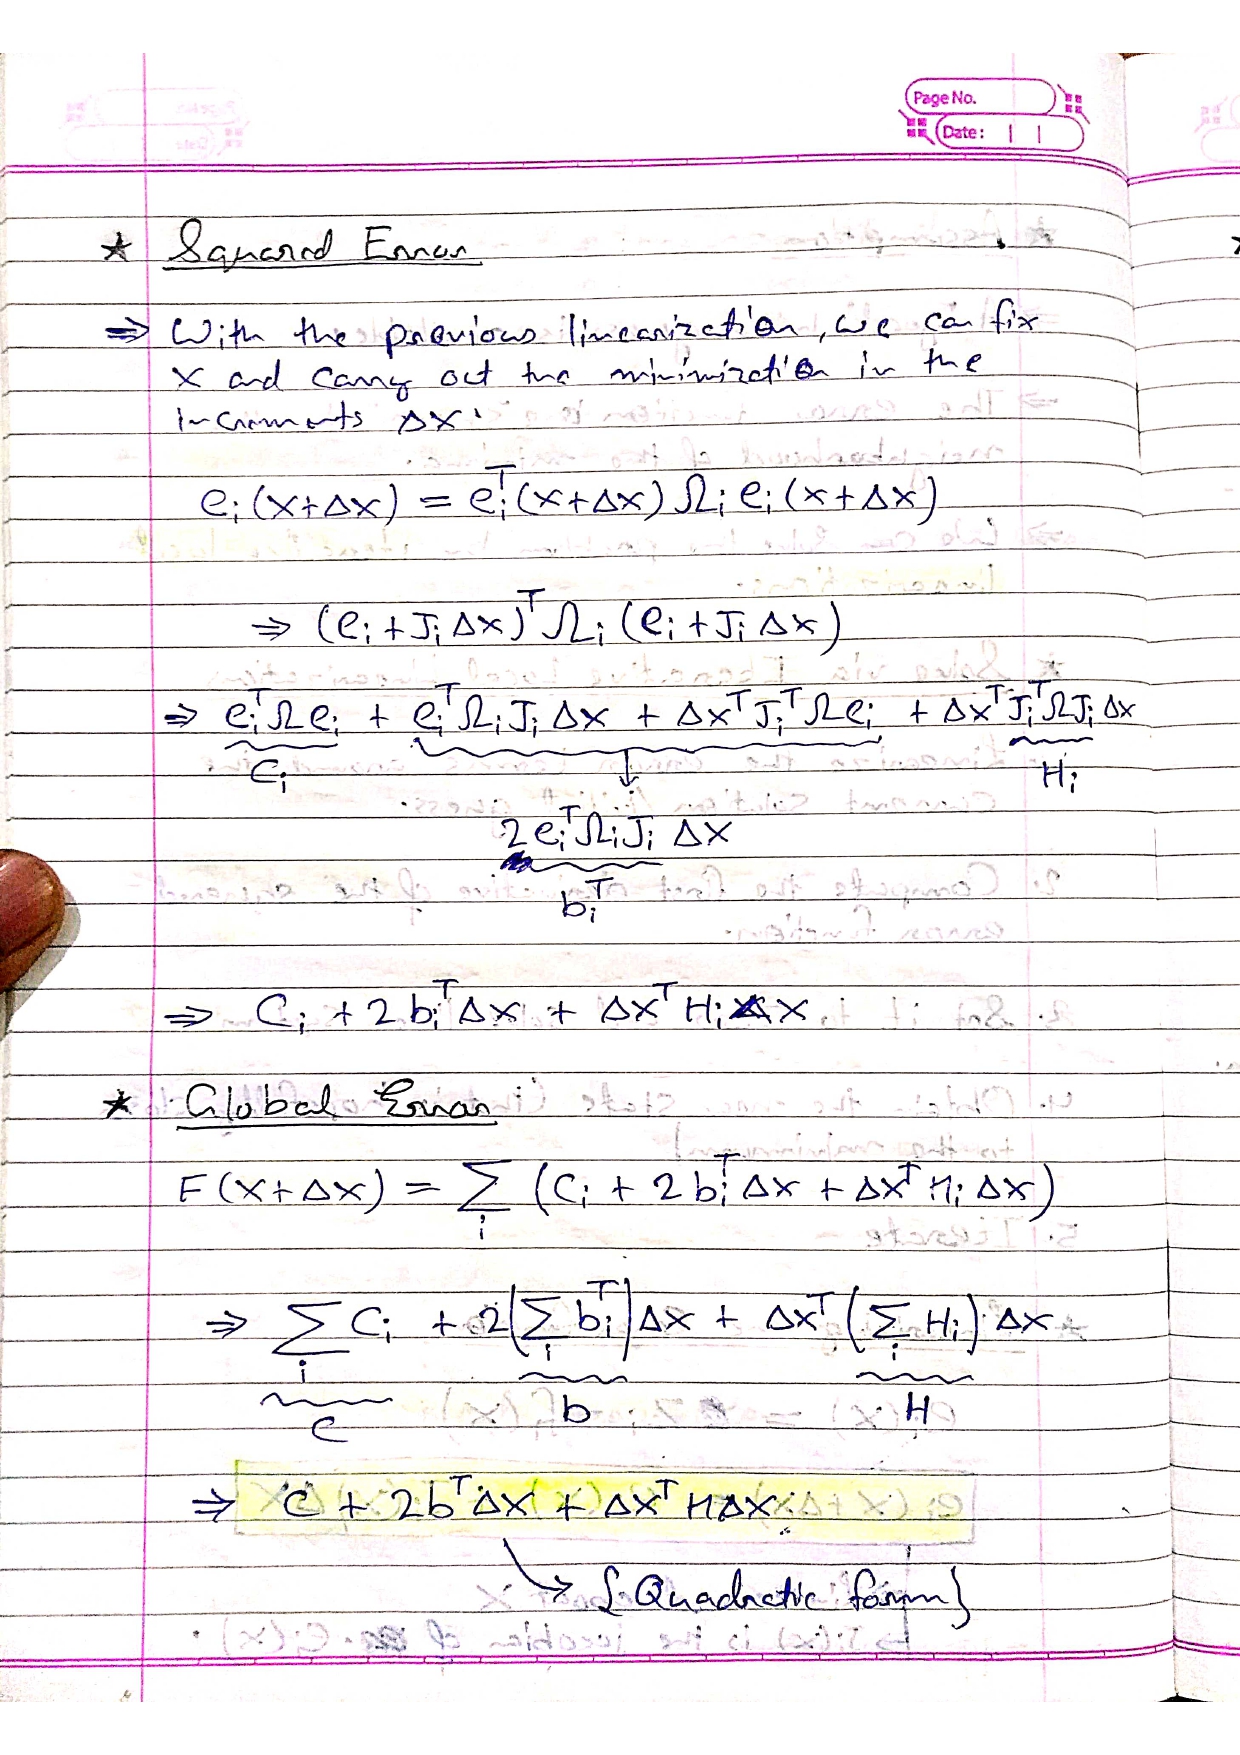 Page No.
Date: | |
★ Squared Error
⇒ With the previous linearization, we can fix
x and carry out the minimization in the
increments Δx.
eᵢ(x+Δx) = eᵢᵀ(x+Δx) Ωᵢ eᵢ(x+Δx)
⇒ (eᵢ + Jᵢ Δx)ᵀ Ωᵢ (eᵢ + Jᵢ Δx)
⇒ eᵢᵀΩeᵢ + eᵢᵀΩᵢJᵢ Δx + Δxᵀ Jᵢᵀ Ωeᵢ + Δxᵀ JᵢᵀΩJᵢ Δx
Cᵢ ↓ Hᵢ
2eᵢᵀΩᵢJᵢ Δx
bᵢᵀ
⇒ Cᵢ + 2bᵢᵀΔx + Δxᵀ Hᵢ Δx
★ Global Error
F(x+Δx) = Σᵢ (Cᵢ + 2bᵢᵀΔx + Δxᵀ Hᵢ Δx)
⇒ Σᵢ Cᵢ + 2(Σᵢ bᵢᵀ)Δx + Δxᵀ (Σᵢ Hᵢ) Δx
C b H
⇒ C + 2bᵀΔx + Δxᵀ HΔx
→ {Quadratic form}